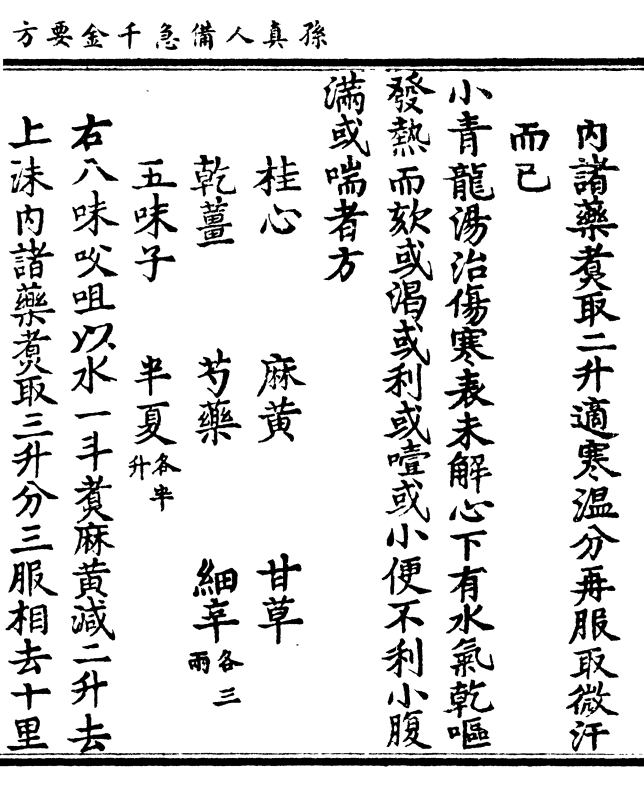 孫真人備急千金要方
內諸藥煑取二升適寒温分再服取微汗
而已
小青龍湯治傷寒表未解心下有水氣乾嘔
發熱而欬或渴或利或噎或小便不利小腹
滿或喘者方
桂心 麻黄 甘草
乾薑 芍藥 細辛各三兩
五味子 半夏各半升
右八味㕮咀以水一斗煑麻黄減二升去
上沫内諸藥煑取三升分三服相去十里